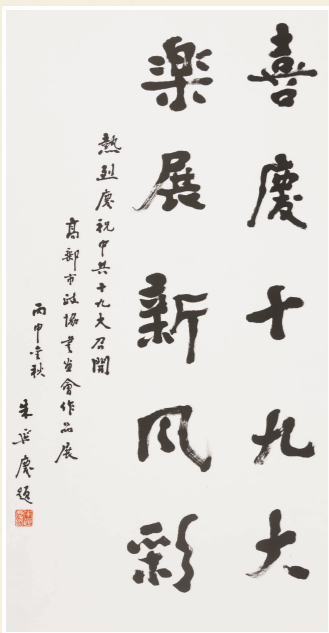 喜慶十九大
楽展新风彩
熱烈慶祝中共十九大召開
高郵市政協書畫會作品展
丙申金秋
朱延慶題